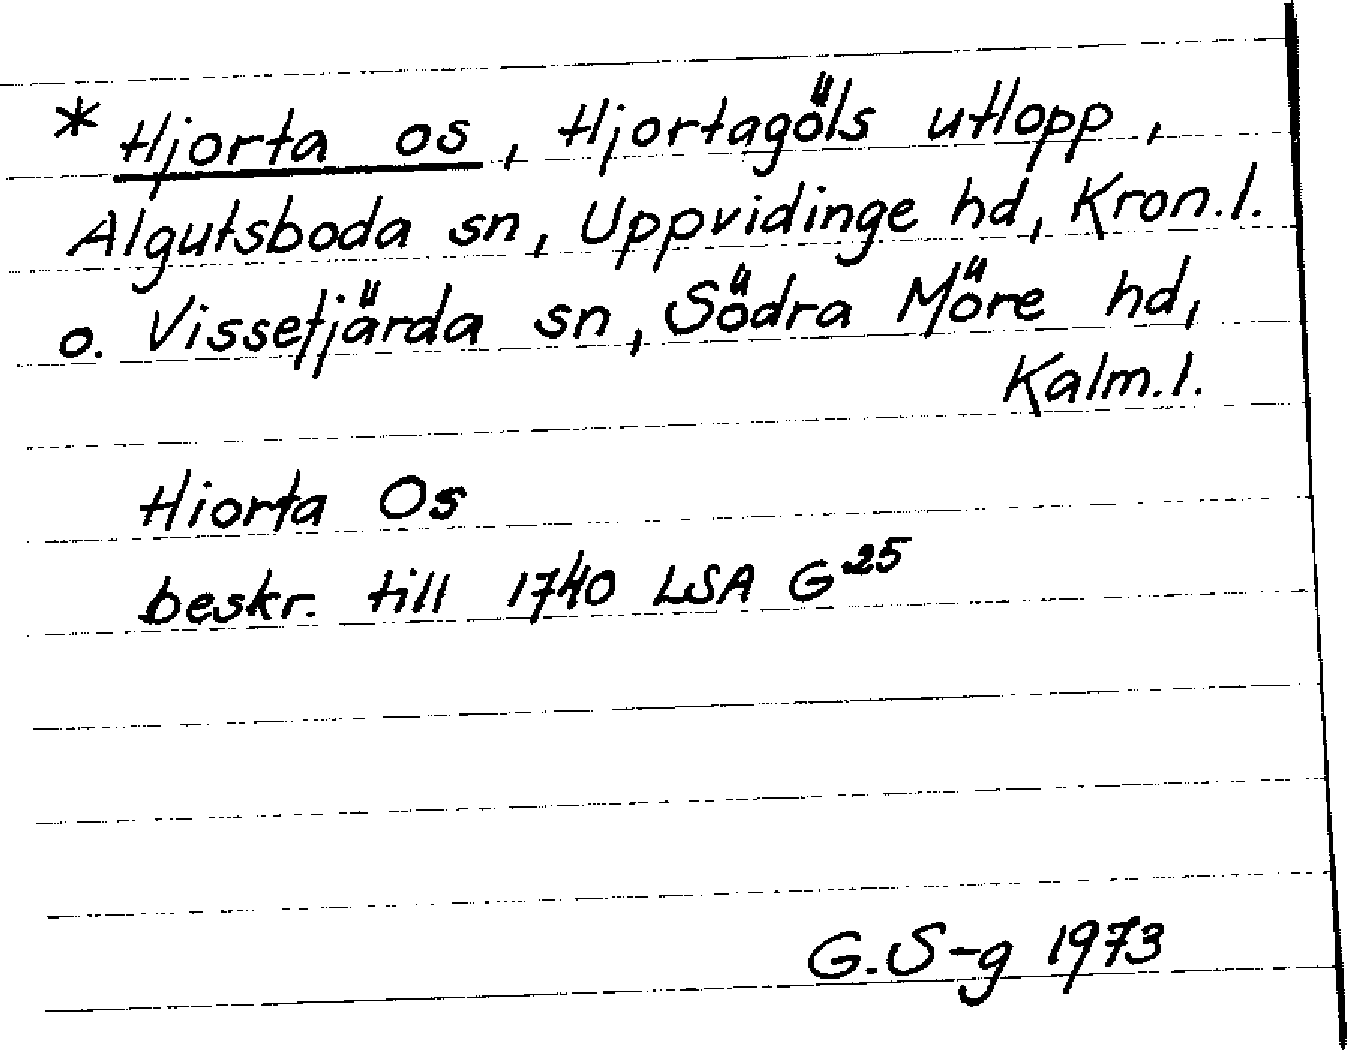 * Hjorta os, Hjortagöls utlopp,
Algutsboda sn, Uppvidinge hd, Kron.l.
o. Vissefjärda sn, Södra Möre hd,
Kalm.l.
Hiorta Os
beskr. till 1740 LSA G 25
G. S-g 1973